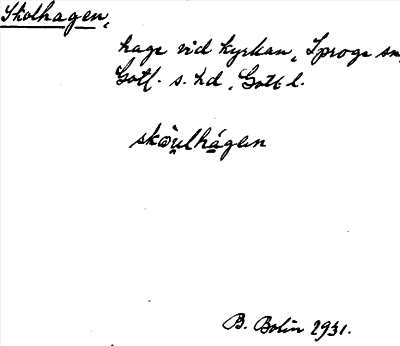 Skolhagen,
hage vid kyrkan, Sproge sn,
Gotl. s. hd, Gotl l.
skòulhágen
B. Bolin 1931.